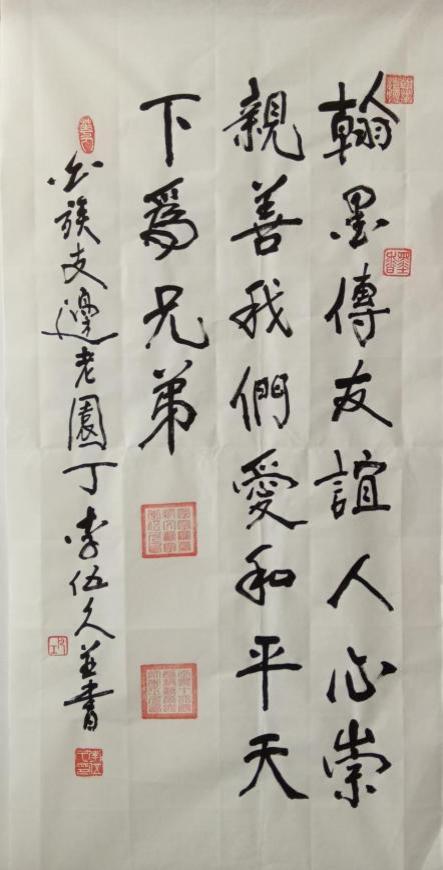 翰墨傳友誼人心崇
親善我們愛和平天
下爲兄弟
族支邊老園丁李伍久並書